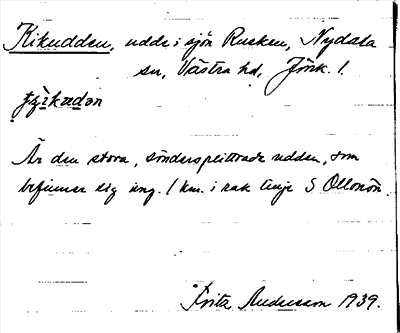 Kikudden, udde i sjön Rusken, Nydala
sn, Västra hd, Jönk. l.
Är den stora, söndersplittrade udden, som
befinner sig ung. 1 km. i rak linje S Ollonön.
Anderson 1939.